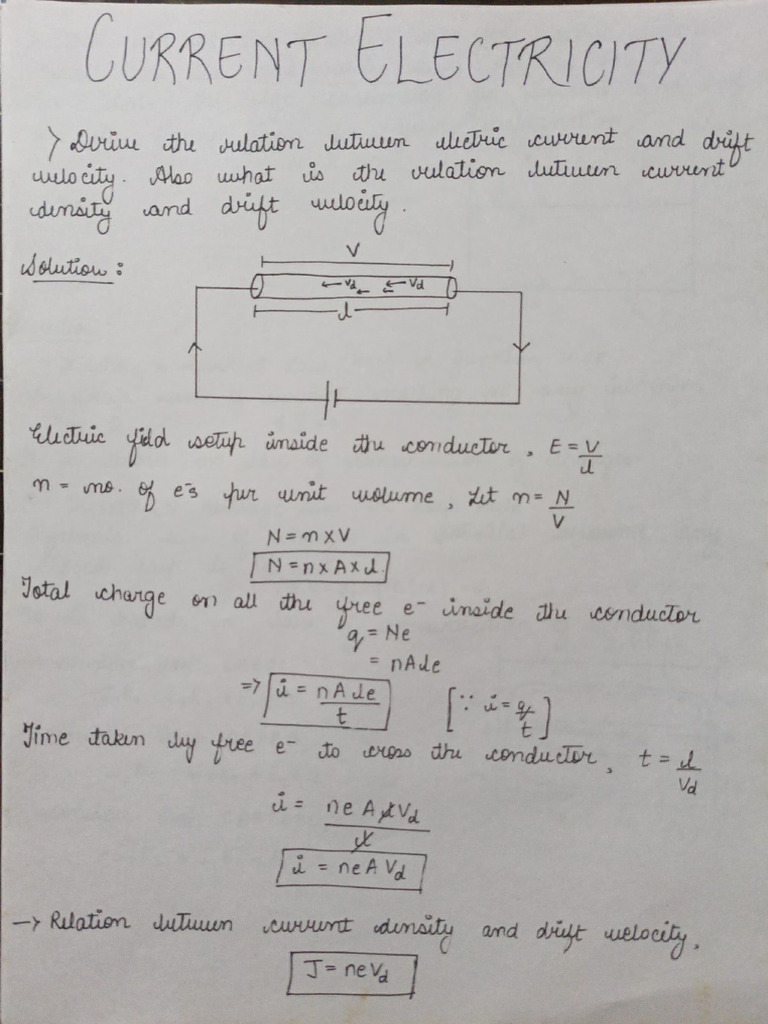 CURRENT ELECTRICITY
> Derive the relation between electric current and drift
velocity. Also what is the relation between current
density and drift velocity.
Solution :
V
← Vd ← ← Vd
l
Electric field setup inside the conductor, E = V/l
n = no. of e⁻s per unit volume, Let n = N/V
N = n x V
N = n x A x l
Total charge on all the free e⁻ inside the conductor
q = Ne
= nAle
=> i = nAle/t [∵ i = q/t]
Time taken by free e⁻ to cross the conductor, t = l/Vd
i = neAlVd/l
i = neAVd
→ Relation between current density and drift velocity,
J = neVd